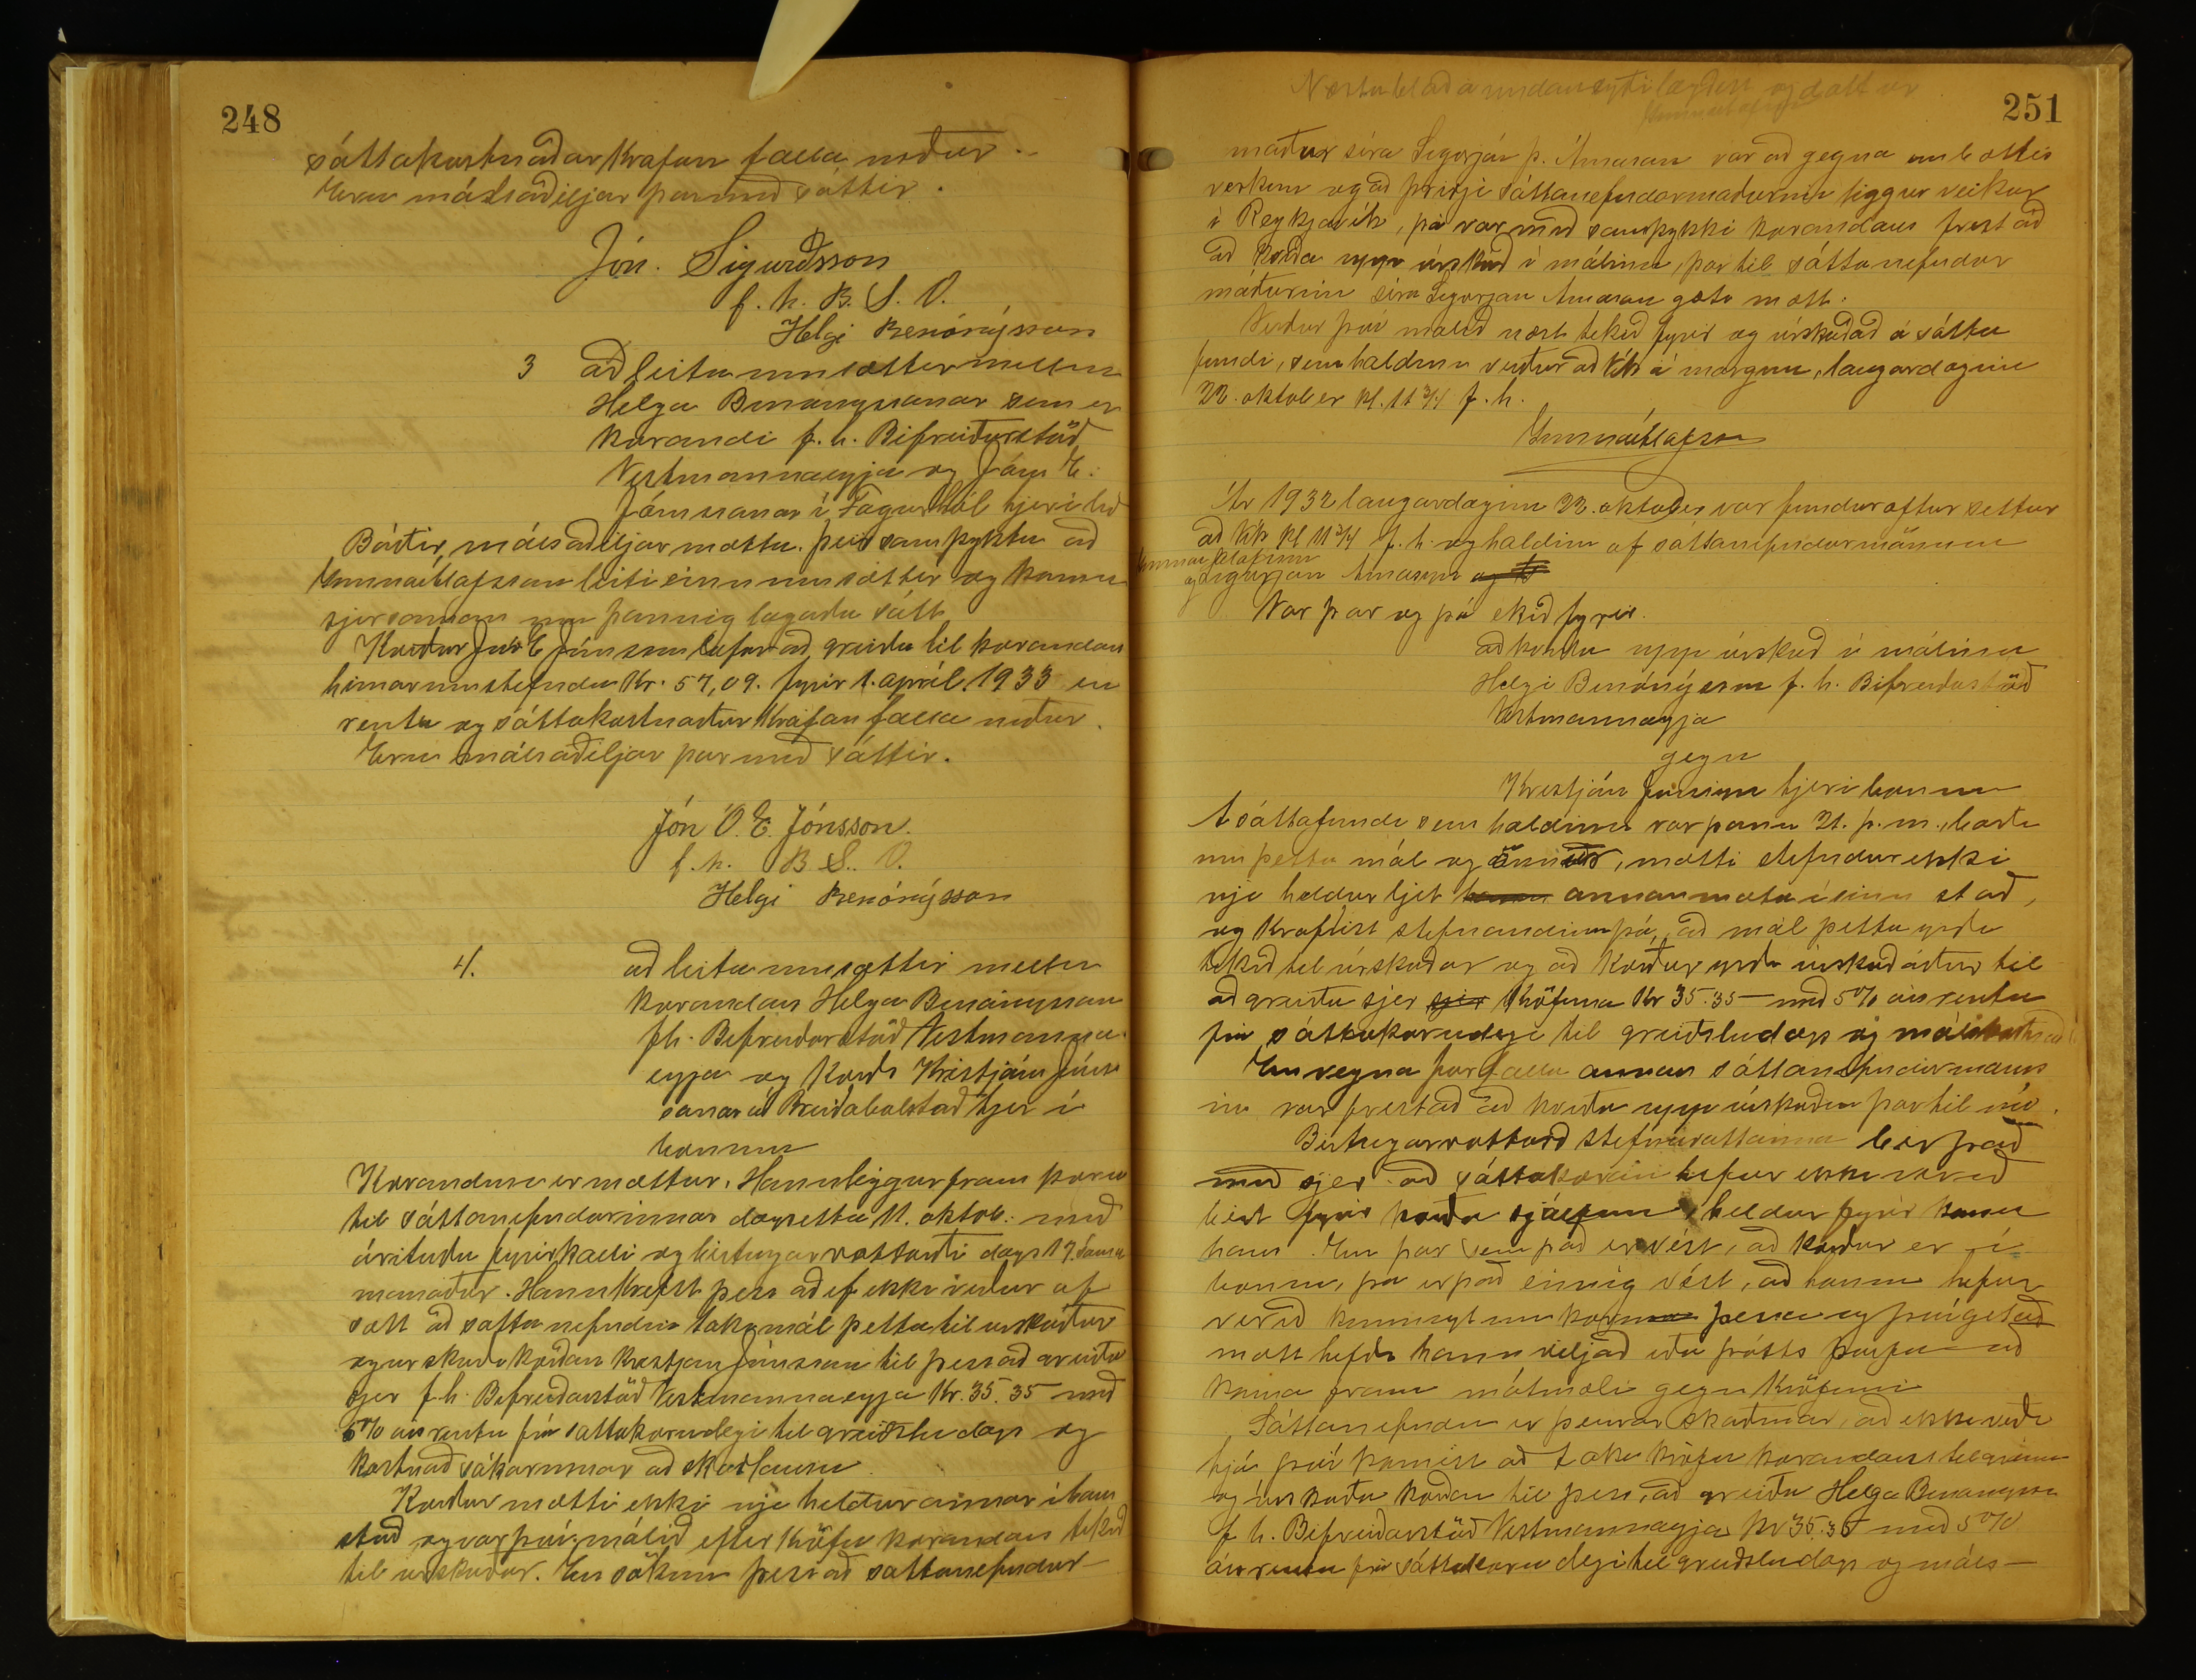 248
sáttakostnaðar krafan falla niður.
Eru málsaðiljar þarmeð sáttir.
Jón. Sigurðsson
f. h. B. S. V.
Helgi Benónýsson
3 að leita um sættir millum
Helga Benónýssonar sem er
kærandi f. h. Bifreiðarstöð
Vestmannaeyja og Jóns E.
Jónssonar í Fagurhól hjer
Báðir málsaðiljar mættu. þeir samþyktu að
Gunnar Ólafsson leiti einn um sættir og komu
sjer saman um þannig lagaða sátt
Kærður Jón E Jónsson lofar að greiða til kærandans
hinar umstefndu Kr. 57,09. fyrir 1. apríl 1933 en
renta og sáttakostnaður krafan falla niður.
Eru málsaðiljar þar með sáttir.
Jón Ó. E. Jónsson.
f. h. B S. V.
Helgi Benónýsson
4. að leita um sættir millum
kærandans Helga Benónýsson
fh. Bifreiðarstöð Vestmanna
eyja og Kærðs Kristjáns Jóns
sonar á Breiðabólstað hjer í
bænum
Kærandinn er mættur. Hann leggur fram kæru
til sáttanefndarinnar dagsetta 11. oktob. með
árituðu fyrirkalli og birtingarvottorði dags 17. sama
mánaðar. Hann krefst þess að ef ekki verður af
sátt að sáttanefndin taki mál þetta til úrskurðar
og úrskurði kærðan Kristján Jónsson til þess að greiða
sjer f.h. Bifreiðarstöð Vestmannaeyja Kr. 35.35 með
5% ársrentu frá sáttakærudegi til greiðsludags og
kostnað sakarinnar að skaðlausu
Kærður mætti ekki nje heldur annar í hans
stað og var því málið eftir kröfu kærandans tekið
til úrskurðar. En sökum þess að sáttanefndar
Næsta blað á undan
251
maður síra Sigurjón Þ. Árnason var að gegna embættis
verkum og að þriðji sáttanefndarmaðurinn liggur veikur
í Reykjavík, þá var með samþykki kærandans frestað
að kveða upp úrskurð í málinu, þar til sáttanefndar
maðurinn síra Sigurjón Árnason gæti mætt.
Verður því málið næst tekið fyrir og úrskurðað á sátta
fundi, sem haldinn verður að Vík á morgun, laugardaginn
22. október kl. 11 3/4 f. h.
Gunnar Ólafsson
Ár 1932 laugardaginn 22. október var fundur aftur settur
að Vík kl 11 3/4 f. h. og haldinn af sáttanefndarmönnum
Gunnar Ólafssyni
og Sigurjón Árnasyni
Var þar og þá tekið fyrir.
að kveða upp úrskurð í málinu
Helgi Benónýsson f. h. Bifreiðastöð
Vestmannaeyja
gegn
Kristján Jónssyni hjer í bænum
Á sáttafundi sem haldinn var þann 21. þ. m.,
um þetta mál og önnur, mætti stefndur ekki
nje heldur ljet annan mæta í sinn stað,
og krafðist stefnandinn þá, að mál þetta yrði
tekið til úrskurðar og að kærður yrði úrskurðaður til
að greiða sjer kröfuna Kr 35.35 með 5% ársrentu
frá sáttakærudegi til greiðsludags og málskostnað
En vegna forfalla annars sáttanefndarmanns
ins var frestað að kveða upp úrskurðinn þar til nú.
Birtingarvottorð stefnuvottanna ber það
með sjer að sáttakæran hefur ekki verið
birt fyrir kærða sjálfum, heldur fyrir konu
hans. En þar sem það er víst, að kærður er í
bænum, þá er það einnig víst, að honum hefur
verið kunnugt um kæruna þessa og því getað
mætt hefði hann viljað eða þótts þurfa að
koma fram mótmæli gegn kröfunni
Sáttanefndin er þeirrar skoðunar, að ekki verði
hjá því komist að taka kröfu kærandans til greina
og úrskurða kærðan til þess, að greiða Helga Benónýssyni
f h. Bifreiðarstöð Vestmannaeyja kr 35.35 með 5%
ársrentu frá sáttakæru degi til greiðsludags og máls-